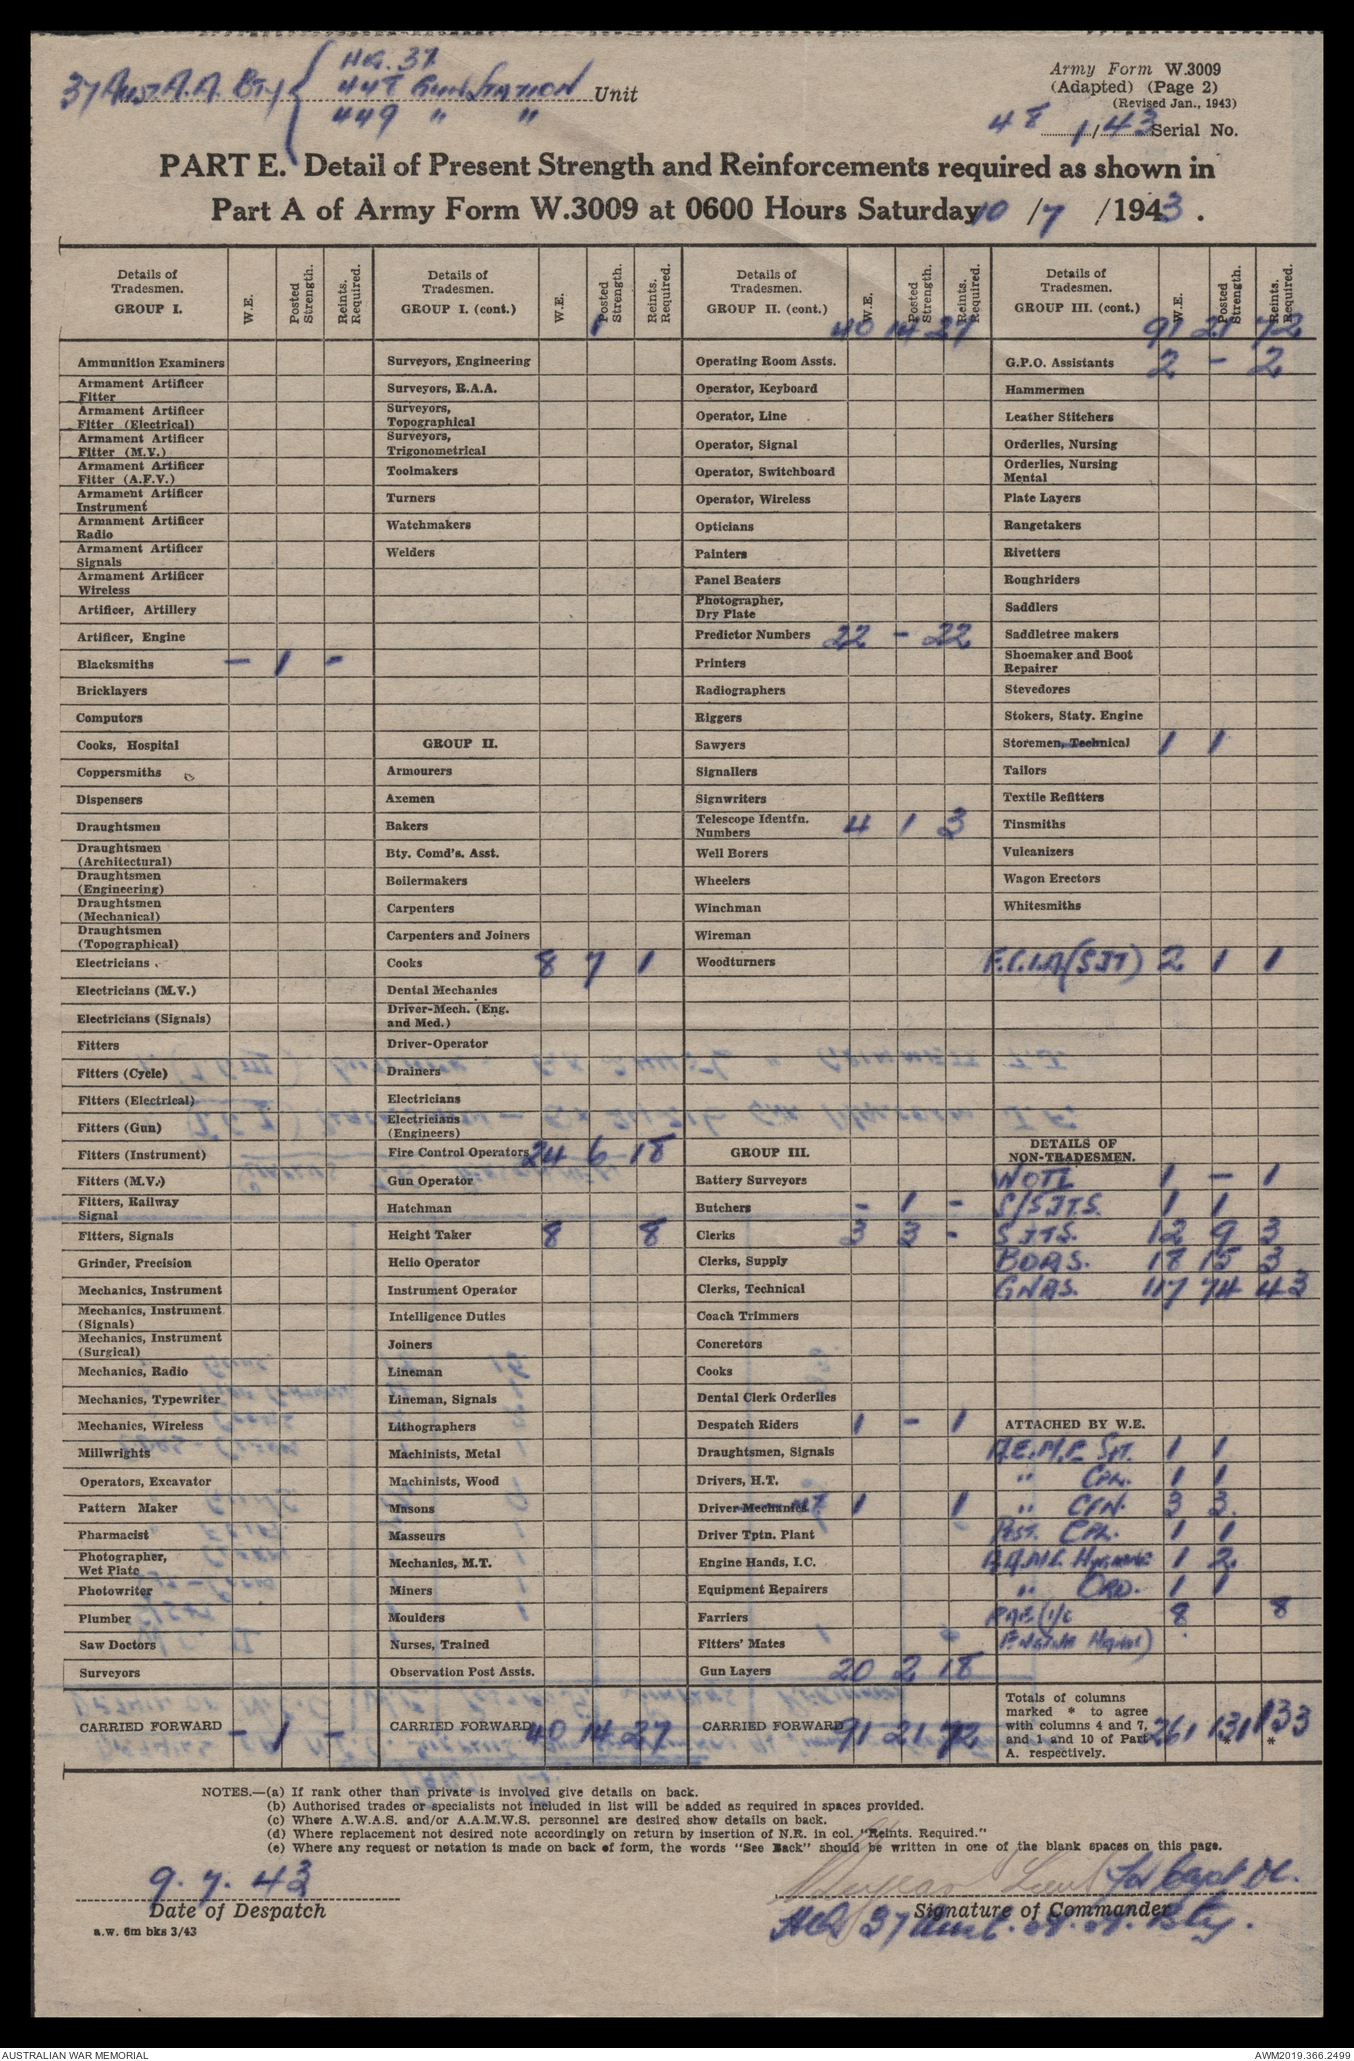 HQ. 37
37 Aust. A.A. Bty { 448 Gun Station Unit
449 " "
Army Form W.3009
(Adapted) (Page 2)
(Revised Jan., 1943)
48 1/43 Serial No.
PART E. Detail of Present Strength and Reinforcements required as shown in
Part A of Army Form W.3009 at 0600 Hours Saturday 10 / 7 / 1943 .
Details of Tradesmen. GROUP I. W.E. Posted Strength. Reints. Required. Details of Tradesmen. GROUP I. (cont.) W.E. Posted Strength. Reints. Required. Details of Tradesmen. GROUP II. (cont.) W.E. Posted Strength. Reints. Required. Details of Tradesmen. GROUP III. (cont.) W.E. Posted Strength. Reints. Required.
1 40 14 27 91 21 72
Ammunition Examiners Surveyors, Engineering Operating Room Assts. G.P.O. Assistants 2 - 2
Armament Artificer Fitter Surveyors, R.A.A. Operator, Keyboard Hammermen
Armament Artificer Fitter (Electrical) Surveyors, Topographical Operator, Line Leather Stitchers
Armament Artificer Fitter (M.V.) Surveyors, Trigonometrical Operator, Signal Orderlies, Nursing
Armament Artificer Fitter (A.F.V.) Toolmakers Operator, Switchboard Orderlies, Nursing Mental
Armament Artificer Instrument Turners Operator, Wireless Plate Layers
Armament Artificer Radio Watchmakers Opticians Rangetakers
Armament Artificer Signals Welders Painters Rivetters
Armament Artificer Wireless Panel Beaters Roughriders
Artificer, Artillery Photographer, Dry Plate Saddlers
Artificer, Engine Predictor Numbers 22 - 22 Saddletree makers
Blacksmiths - 1 - Printers Shoemaker and Boot Repairer
Bricklayers Radiographers Stevedores
Computors Riggers Stokers, Staty. Engine
Cooks, Hospital GROUP II. Sawyers Storemen, Technical 1 1
Coppersmiths Armourers Signallers Tailors
Dispensers Axemen Signwriters Textile Refitters
Draughtsmen Bakers Telescope Identfn. Numbers 4 1 3 Tinsmiths
Draughtsmen (Architectural) Bty. Comd's. Asst. Well Borers Vulcanizers
Draughtsmen (Engineering) Boilermakers Wheelers Wagon Erectors
Draughtsmen (Mechanical) Carpenters Winchman Whitesmiths
Draughtsmen (Topographical) Carpenters and Joiners Wireman
Electricians Cooks 8 7 1 Woodturners F.C.I.A (SJT) 2 1 1
Electricians (M.V.) Dental Mechanics
Electricians (Signals) Driver-Mech. (Eng. and Med.)
Fitters Driver-Operator
Fitters (Cycle) Drainers
Fitters (Electrical) Electricians
Fitters (Gun) Electricians (Engineers) DETAILS OF
Fitters (Instrument) Fire Control Operators 24 6 18 GROUP III. NON-TRADESMEN.
Fitters (M.V.) Gun Operator Battery Surveyors WOII 1 - 1
Fitters, Railway Signal Hatchman Butchers - 1 - S/SJTS. 1 1
Fitters, Signals Height Taker 8 8 Clerks 3 3 - SJTS. 12 9 3
Grinder, Precision Helio Operator Clerks, Supply BDRS. 18 15 3
Mechanics, Instrument Instrument Operator Clerks, Technical GNRS. 117 74 43
Mechanics, Instrument (Signals) Intelligence Duties Coach Trimmers
Mechanics, Instrument (Surgical) Joiners Concretors
Mechanics, Radio Lineman Cooks
Mechanics, Typewriter Lineman, Signals Dental Clerk Orderlies
Mechanics, Wireless Lithographers Despatch Riders 1 - 1 ATTACHED BY W.E.
Millwrights Machinists, Metal Draughtsmen, Signals A.E.M.E. SJT. 1 1
Operators, Excavator Machinists, Wood Drivers, H.T. " CPL. 1 1
Pattern Maker Masons Driver Mechanics MT 1 1 " CFN. 3 3
Pharmacist Masseurs Driver Tptn. Plant Post. CPL. 1 1
Photographer, Wet Plate Mechanics, M.T. Engine Hands, I.C. A.A.M.C. Hygiene 1 2
Photowriter Miners Equipment Repairers " ORD. 1 1
Plumber Moulders Farriers (i/c 8 8
Saw Doctors Nurses, Trained Fitters' Mates
Surveyors Observation Post Assts. Gun Layers 20 2 18
CARRIED FORWARD - 1 - CARRIED FORWARD 40 14 27 CARRIED FORWARD 91 21 72 Totals of columns marked * to agree with columns 4 and 7, and 1 and 10 of Part A. respectively. 261 131 * 133 *
NOTES.—(a) If rank other than private is involved give details on back.
(b) Authorised trades or specialists not included in list will be added as required in spaces provided.
(c) Where A.W.A.S. and/or A.A.M.W.S. personnel are desired show details on back.
(d) Where replacement not desired note accordingly on return by insertion of N.R. in col. "Reints. Required."
(e) Where any request or notation is made on back of form, the words "See Back" should be written in one of the blank spaces on this page.
9. 7. 43 Lieut for Capt OC.
Date of Despatch Signature of Commander
HQ 37 Aust. A.A. Bty.
a.w. 6m bks 3/43
AUSTRALIAN WAR MEMORIAL AWM2019.366.2499